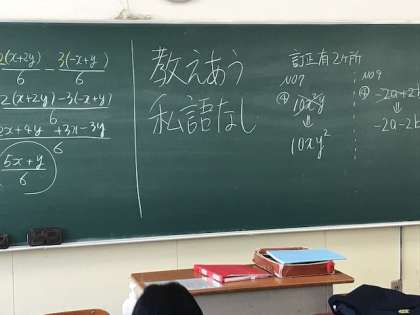 2(x+2y)/6 - 3(-x+y)/6
2(x+2y)-3(-x+y)/6
2x+4y+3x-3y/6
5x+y/6
教えあう
私語なし
訂正有2ヶ所
No7
④ 10x²y
↓
10xy²
No9
④ -2a+2b
↓
-2a-2b